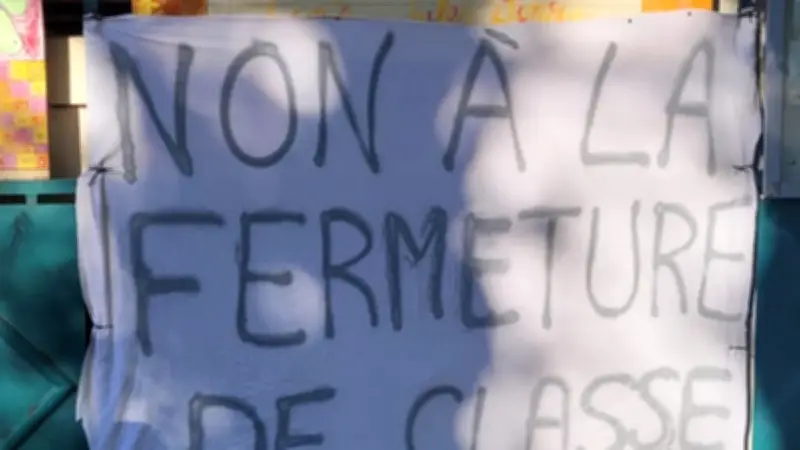 NON À LA
FERMETURE
DE CLASSE